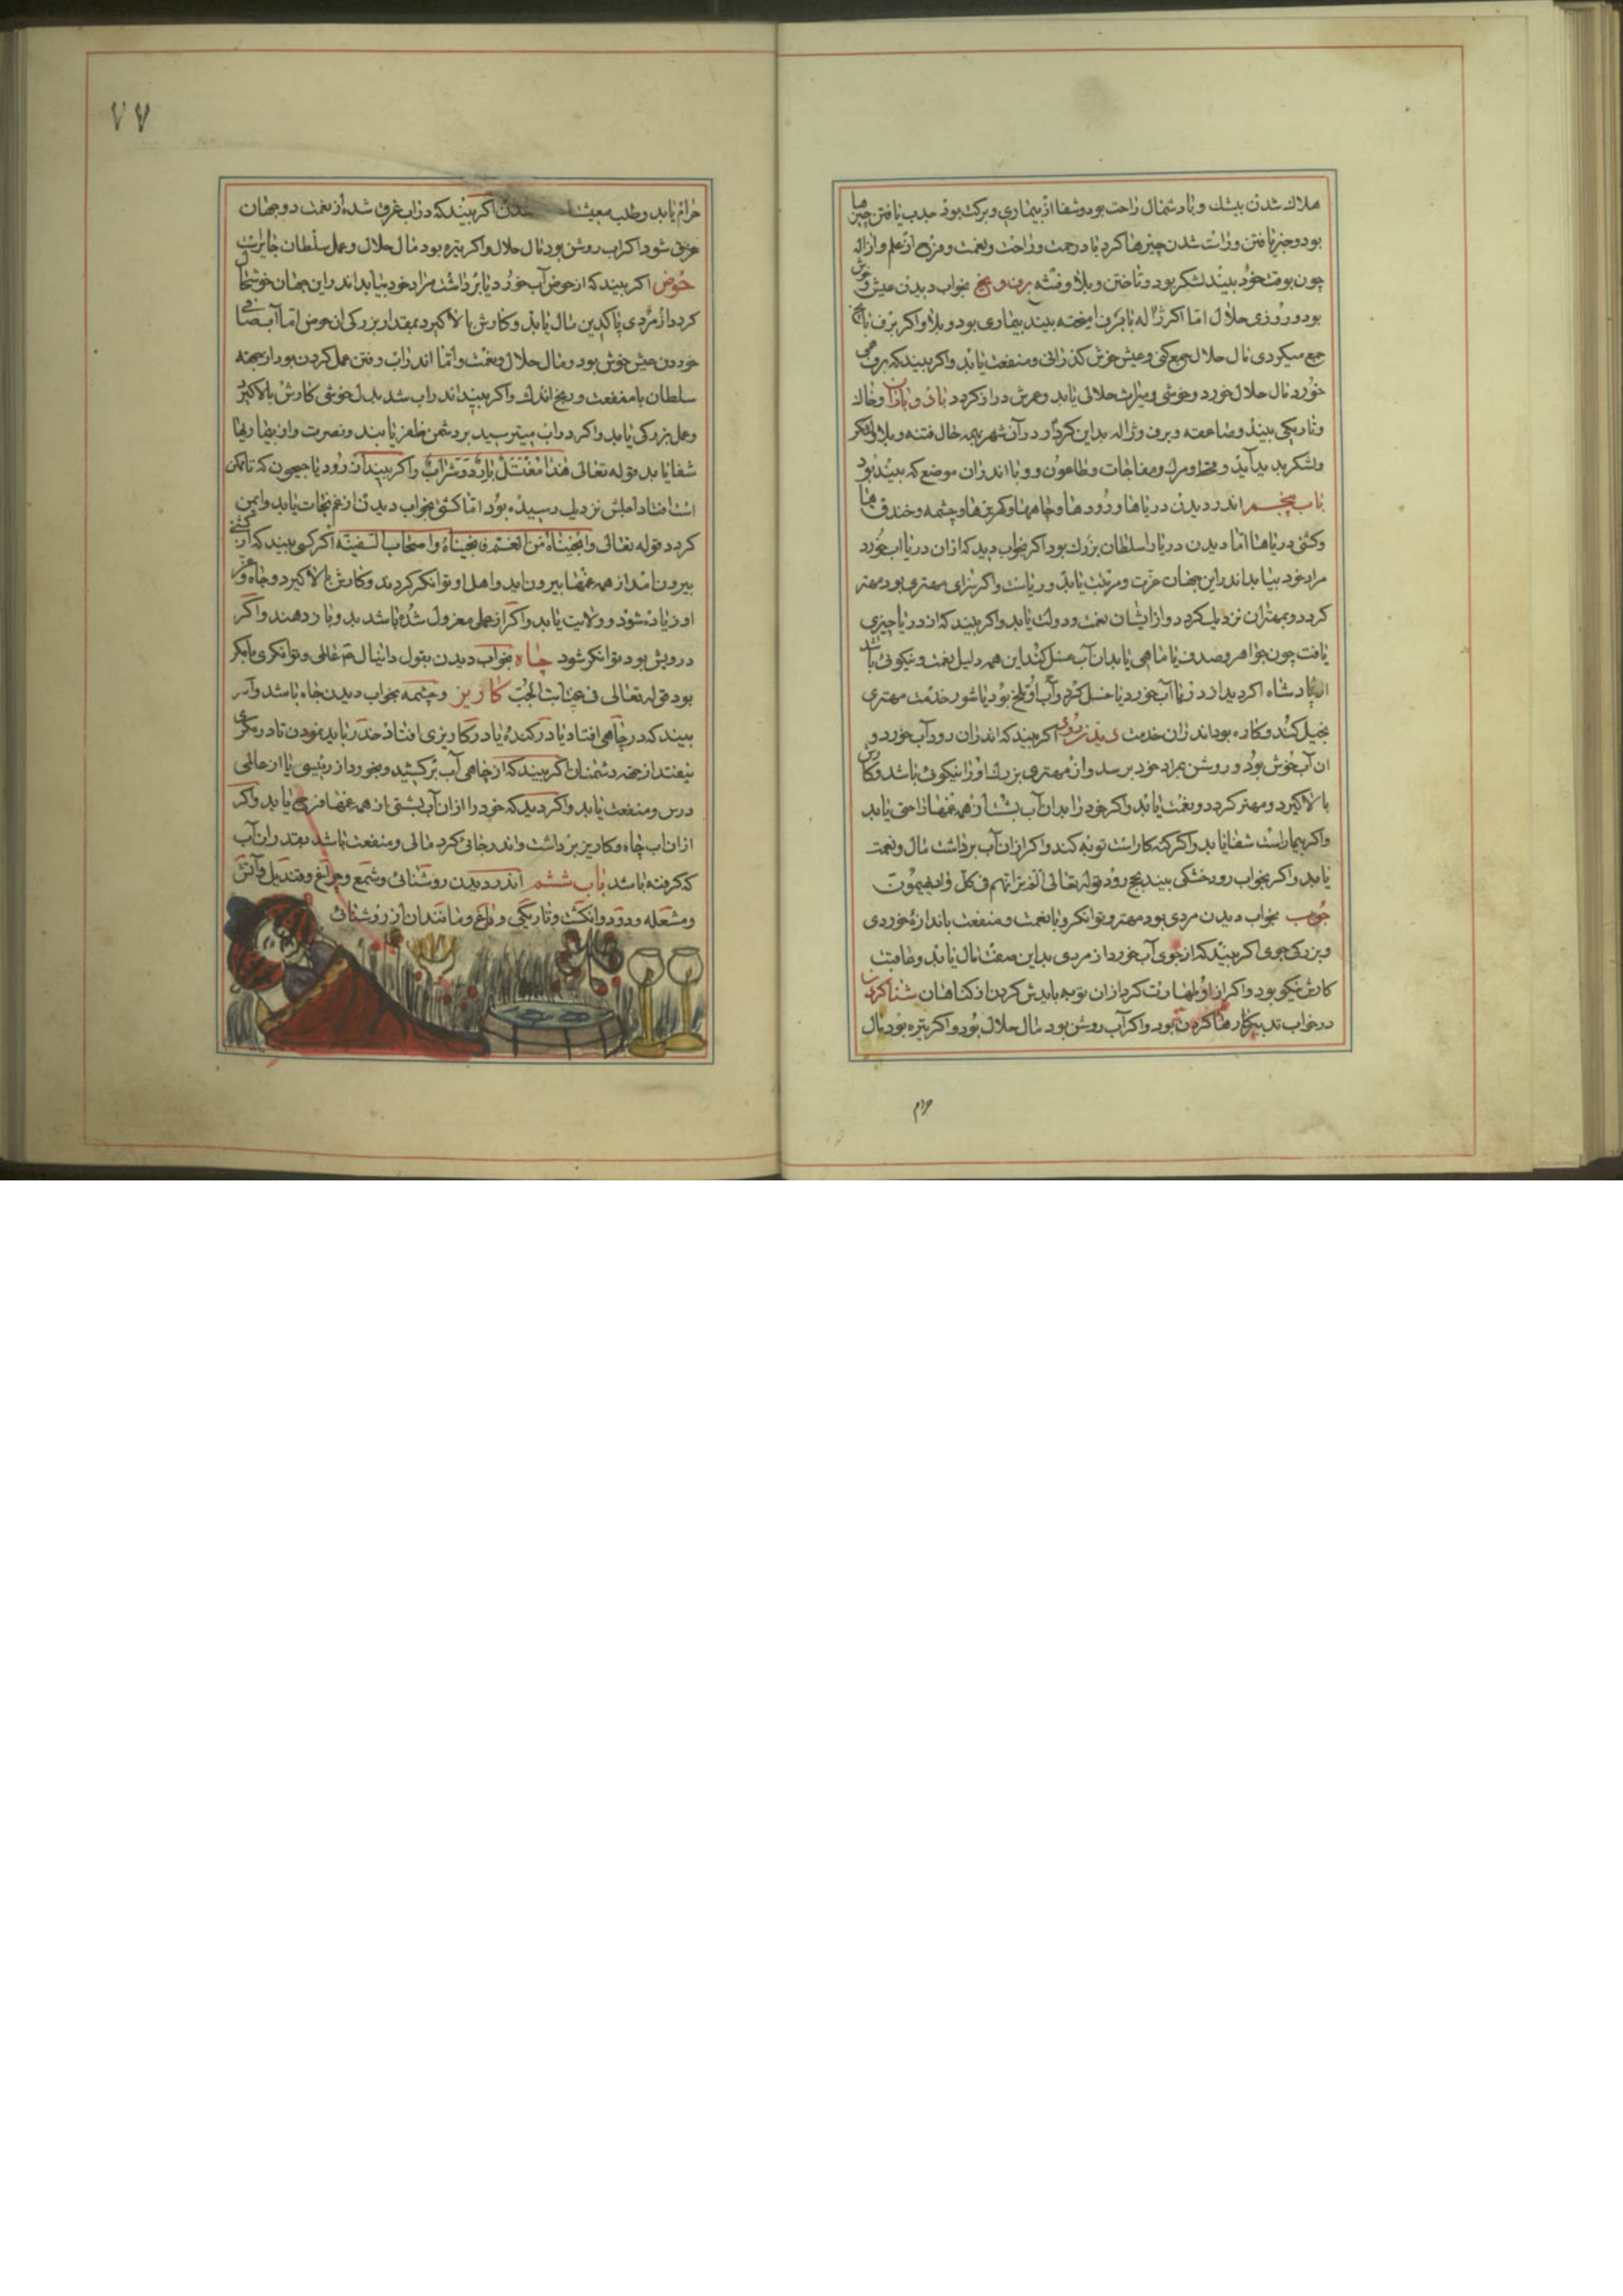 هلاک شدن بیشك و باد شمال راحت بود و شفا از بیماری و برکت بود جذب یافتن چیزها
بود و خبر یافتن و راست شدن چیزها کرد با رحمت و راحت و نعمت و از علم و ژاله
چون بوقت خود بیند لشکر بود و تاختن و بلا و فتنه برف و یخ بخواب دیدن عیش خوش
بود و روزی حلال اما اکر ژاله با برف امیخته بیند بیماری بود و بلا و اکر برف با یخ
جمع میکردی مال حلال جمع کنی و عیش خوش کذرانی و منفعت یابد و اکر بیند که برف همی
خورد مال حلال خورد و خوشی و میراث حلالی یابد و عمرش دراز کردد باد و باران و خاك
و تاریکی بیند و صاعقه و برف و ژاله بداین کردار در آن شهر بهمه حال فتنه و بلا و لشکر
و لشکر پدید آید و قحط و مرك و مفاجات و طاعون و وبا اندران موضع که بیند بود
باب پنجم اندر دیدن دریاها و رودها و چاهها و کهریزها و چشمه و خندق ها
و کشتی دریاها اما دیدن دریا سلطان بزرك بود اکر بخواب دید که ازان دریا اب خورد
مراد خود بیابد اندر این جهان عزت و مرتبت یابد و ریاست و اکر سزای مهتری بود مهتر
کردد و بمهتران نزدیك کردد و از ایشان نعمت و دولت یابد و اکر بیند که از دریا چیزی
یافت چون جواهر و صدف یا ماهی یا بدان آب غسل کند این همه دلیل نعمت و نیکوئی باشد
از پادشاه اکر دید از دریا آب خورد یا غسل کرد و آب او تلخ بود یا شور خدمت مهتری
بخیل کند و کاره بود اندران خدمت دیدن رود اکر بیند که اندران رود آب خورد و
ان آب خوش بود و روشن بمراد خود برسد و از مهتری بزرك او را نیکوئی باشد و کارش
بالا کیرد و مهتر کردد و نعمت یابد و اکر خود را بدان آب بشست از همه غمها راحتی یابد
و اکر بیمار است شفا یابد و اکر کنه کار است توبه کند و اکر ازان آب برداشت مال و نعمت
یابد و اکر بخواب رود خشکی بیند رنج رود قوله تعالی الم تر انهم فی کل واد یهیمون
جوب بخواب دیدن مردی بود مهتر و توانکر و با نعمت و منفعت باندازه خوردی
و بزرکی جوی اکر بیند که از جوی آب خورد از مردی بداین صفت مال یابد و عاقبت
کارش نیکو بود و اکر از او طهارت کرد ازان توبه بایدش کردن از کناهان شنا کردن
در خواب تدبیر کارها کردن بود و اکر آب روشن بود مال حلال بود و اکر تیره بود مال
حرام
۷۷
حرام یابد و طلب معیشت شدن اکر بیند که در اب غرق شد از نعمت دو جهان
غرق شود اکر اب روشن بود مال حلال و اکر تیره بود مال حلال و عمل سلطان جابر است
حوض اکر بیند که از حوض آب خورد یا برداشت مراد خود بیابد اندر این جهان خوشحال
کردد از مردی پاکدین مال یابد و کارش بالا کیرد بمقدار بزرکی ان حوض اما آب صافی
خوردن عیش خوش بود و مال حلال و نعمت و اما اندر اب رفتن عمل کردن بود از جهته
سلطان با منفعت و رنج اندك و اکر بیند اندر اب شد بدل خوشی کارش بالا کیرد
و عمل بزرکی یابد و اکر در اب میترسید بر دشمن ظفر یابند و نصرت و از بیماریها
شفا یابد قوله تعالی هذا مغتسل بارد و شراب و اکر بیند ان رود یا جیحون که ناکهان
افتاد اجلش نزدیك رسیده بود اما کشتی بخواب دیدن از غم نجات یابد و ایمن
کردد قوله تعالی وانجیناه من الغم فانجیناه و اصحاب السفینه اکر کسی بیند که از کشتی
بیرون امد از همه غمها بیرون اید و اهل او توانکر کردند و کارش بالا کیرد و جاه و عز
او زیاده شود و ولایت یابد و اکر از عملی معزول شده باشد بدو باز دهند و اکر
درویش بود توانکر شود چاه بخواب دیدن بقول دانیال ع عالمی و توانکری با مکر
بود قوله تعالی فی غیابت الجب کاریز و چشمه بخواب دیدن جاه باشد و اکر
بیند که در چاهی افتاد یا در کنده یا در کاریزی افتاد حذر باید نمودن تا در مکری
نیفتد از جهة دشمنان اکر بیند که از چاهی آب برکشید و بخورد از رئیسی یا از عالمی
درس و منفعت یابد و اکر دید که خود را ازان آب بشتی از همه غمها فرج یابد و اکر
ازان اب چاه و کاریز برداشت و اندر جائی کرد مالی و منفعت باشد بقدر ان آب
که کرفته باشد باب ششم اندر دیدن روشنائی و شمع و چراغ و قندیل و آتش
و مشعله و دود و انکشت و تاریکی و داغ و مانند ان از روشنائی